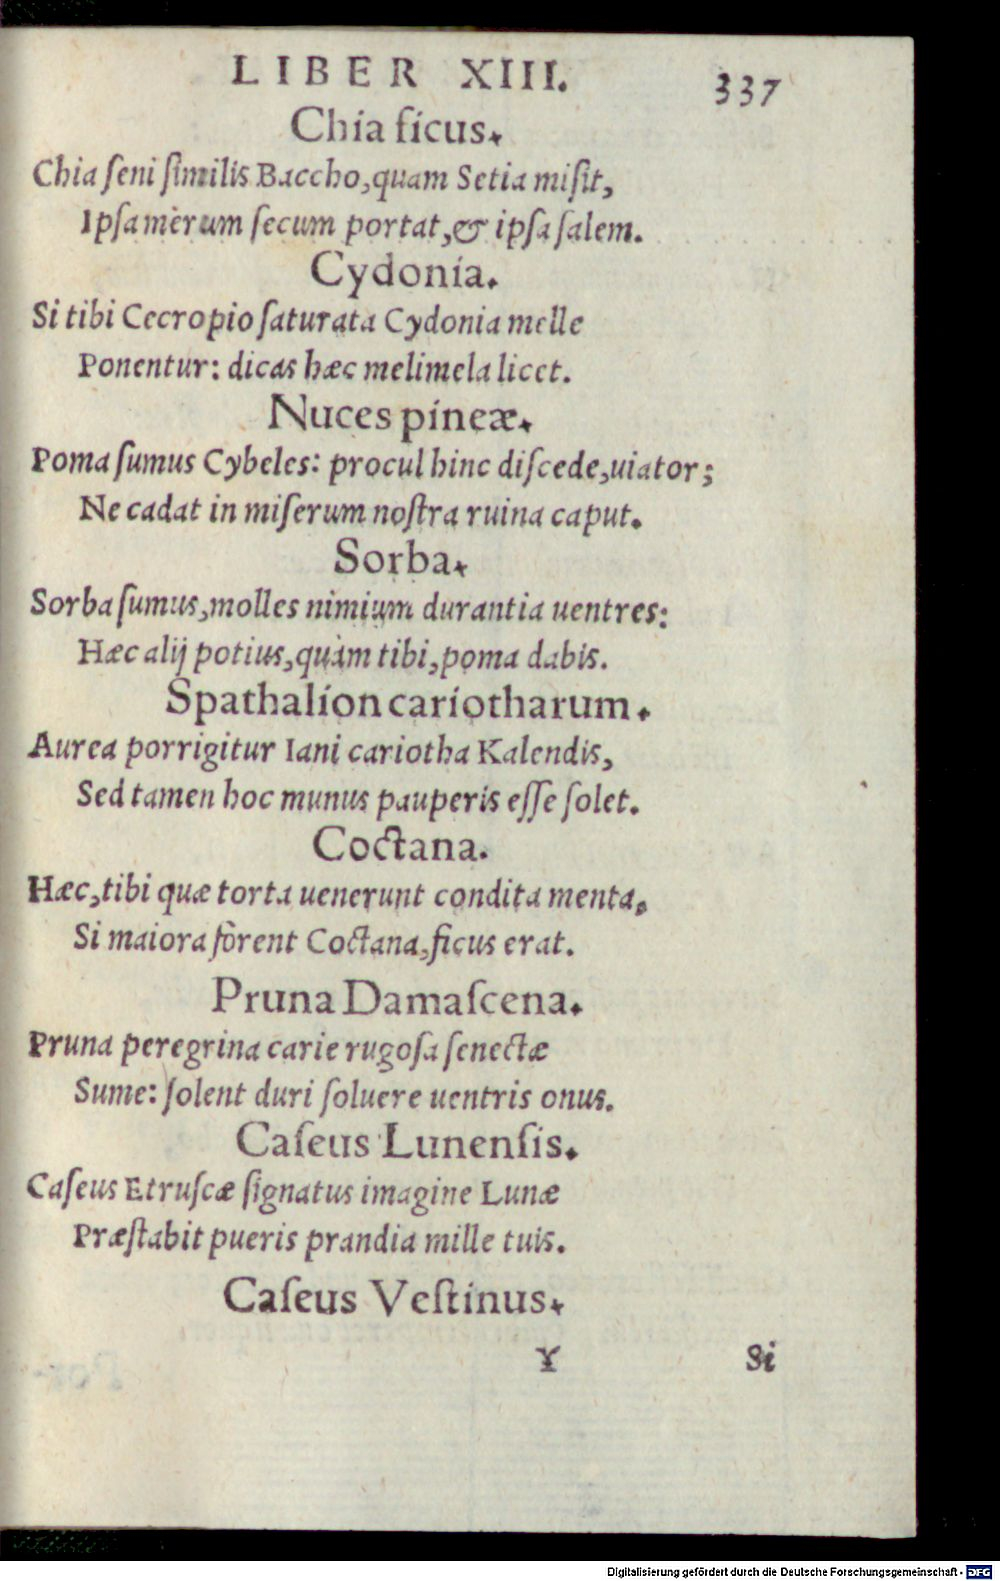 LIBER XIII.
337
Chia ficus.
Chia ſeni ſimilis Baccho, quam Setia miſit,
Ipſa mèrum ſecum portat, & ipſa ſalem.
Cydonia.
Si tibi Cecropio ſaturata Cydonia melle
Ponentur: dicas hæc melimela licet.
Nuces pineæ.
Poma ſumus Cybeles: procul hinc diſcede, uiator;
Ne cadat in miſerum noſtra ruina caput.
Sorba.
Sorba ſumus, molles nimium durantia uentres:
Hæc alij potius, quàm tibi, poma dabis.
Spathalion cariotharum.
Aurea porrigitur Iani cariotha Kalendis,
Sed tamen hoc munus pauperis eſſe ſolet.
Coctana.
Hæc, tibi quæ torta uenerunt condita menta,
Si maiora fôrent Coctana, ficus erat.
Pruna Damaſcena.
Pruna peregrina carie rugoſa ſenectæ
Sume: ſolent duri ſoluere uentris onus.
Caſeus Lunenſis.
Caſeus Etruſcæ ſignatus imagine Lunæ
Præſtabit pueris prandia mille tuis.
Caſeus Veſtinus.
Y
Si
Digitalisierung gefördert durch die Deutsche Forschungsgemeinschaft - DFG